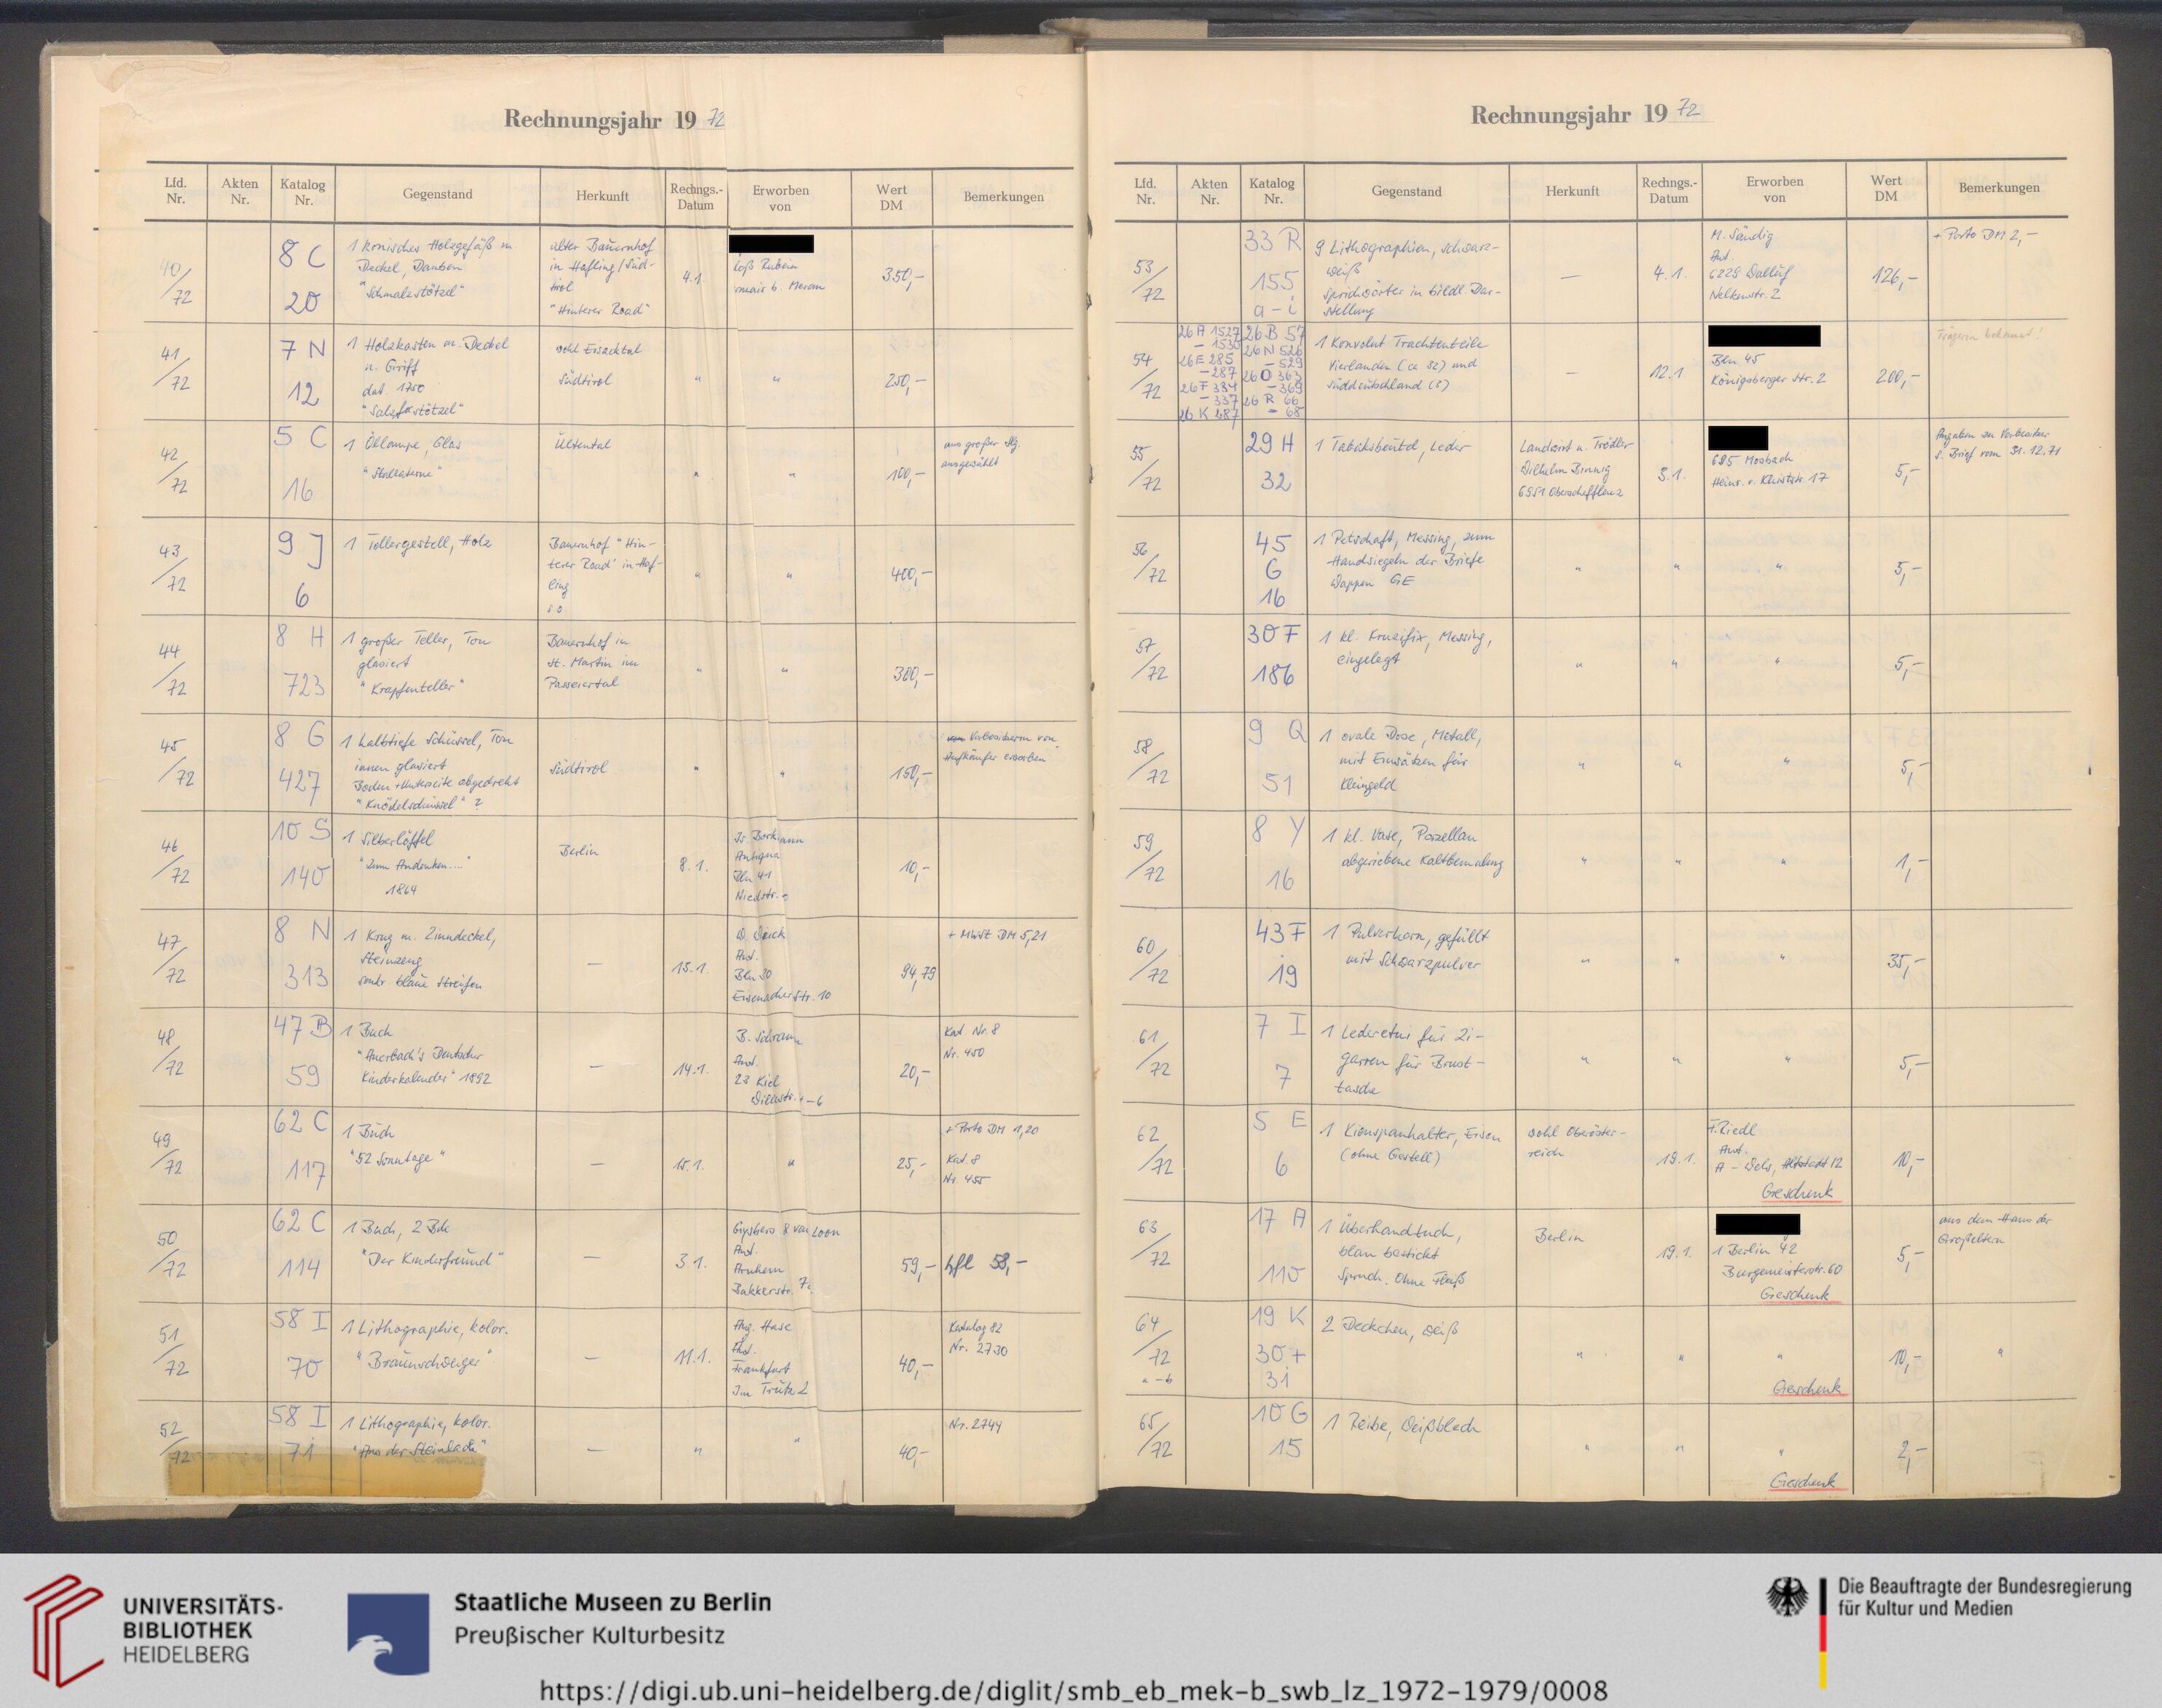 Rechnungsjahr 19 72
Lfd. Nr.
Akten Nr.
Katalog Nr.
Gegenstand
Herkunft
Rechngs.-Datum
Erworben von
Wert DM
Bemerkungen
40/72
8 C
20
1 konisches Holzgefäß m.
Deckel, Dauben
"Schmalzstötzel"
alter Bauernhof
in Hafling/Süd-
tirol
"Hinterer Road"
4.1.
b. Meran
350,-
41/72
7 N
12
1 Holzkasten m. Deckel
u. Griff
dat. 1750
wohl Eisacktal
Südtirol
"
"
250,-
42/72
5 C
16
1 Öllampe, Glas
Ultental
"
"
100,-
aus großer Slg
ausgewählt
43/72
9 J
6
1 Tellergestell, Holz
Bauernhof "Hin-
terer Road" in Haf-
ling
s.o
"
"
400,-
44/72
8 H
723
1 großer Teller, Ton
glasiert
"Krapfenteller"
Bauernhof in
St. Martin im
Passeiertal
"
"
300,-
45/72
8 G
427
1 halbtiefe Schüssel, Ton
innen glasiert
Boden + Unterseite abgedreht
"Knödelschüssel" ?
Südtirol
"
"
150,-
46/72
10 S
140
1 Silberlöffel
"Zum Andenken...."
1864
Berlin
8.1.
Antiqua
Bln 41
Niedstr.
10,-
47/72
8 N
313
1 Krug m. Zinndeckel,
Steinzeug
senkr. blaue Streifen
—
15.1.
Ant.
Bln 30
Eisenacher Str. 10
94,79
+ MWSt DM 5,21
48/72
47 B
59
1 Buch
"Auerbach's Deutscher
Kinderkalender" 1892
—
14.1.
B. Schramm
Ant.
23 Kiel
20,-
Kat Nr. 8
Nr. 450
49/72
62 C
117
1 Buch
"52 Sonntage"
—
15.1.
"
25,-
+ Porto DM 1,20
Kat. 8
Nr. 455
50/72
62 C
114
1 Buch, 2 Bde
"Der Kinderfreund"
—
3.1.
Gysbers & van Loon
Ant.
Arnhem
Bakkerstr. 7
59,-
hfl 58,-
51/72
58 I
70
1 Lithographie, kolor.
"Braunschweiger"
—
11.1.
Ant.
Frankfurt
Im Trutz 2
40,-
Katalog 82
Nr. 2730
52/72
58 I
71
1 Lithographie, kolor.
"Aus der Steinlach"
—
"
"
40,-
Nr. 2744
Rechnungsjahr 19 72
Lfd. Nr.
Akten Nr.
Katalog Nr.
Gegenstand
Herkunft
Rechngs.-Datum
Erworben von
Wert DM
Bemerkungen
53/72
33 R
155
a-i
9 Lithographien, schwarz-
weiß
Sprichwörter in bildl. Dar-
stellung
—
4.1.
M. Sändig
Ant.
6229 Walluf
Nelkenstr. 2
126,-
+ Porto DM 2,-
54/72
26 A 1527
- 1530
26 E 285
- 287
26 F 334
- 337
26 K 287
26 B 57
26 N 526
- 529
26 O 363
- 369
26 R 66
- 68
1 Konvolut Trachtenteile
Vierlanden (ca 52) und
Süddeutschland (8)
—
12.1
Bln 45
Königsberger Str. 2
200,-
Trägerin bekannt!
55/72
29 H
32
1 Tabaksbeutel, Leder
Landwirt u. Trödler
Wilhelm Binnig
6951 Oberschefflenz
3.1.
695 Mosbach
Heinr. v. Kleiststr. 17
5,-
Angaben zu Vorbesitzer
s. Brief vom 31.12.71
56/72
45
G
16
1 Petschaft, Messing, zum
Handsiegeln der Briefe
Wappen GE
"
"
"
5,-
57/72
30 F
186
1 kl. Kruzifix, Messing,
eingelegt
"
"
"
5,-
58/72
9 Q
51
1 ovale Dose, Metall,
mit Einsätzen für
Kleingeld
"
"
"
5,-
59/72
8 Y
16
1 kl. Vase, Porzellan
abgeriebene Kaltbemalung
"
"
"
1,-
60/72
43 F
19
1 Pulverhorn, gefüllt
mit Schwarzpulver
"
"
"
35,-
61/72
7 I
7
1 Lederetui für Zi-
garren für Brust-
tasche
"
"
"
5,-
62/72
5 E
6
1 Kienspanhalter, Eisen
(ohne Gestell)
wohl Oberöster-
reich
19.1.
F. Riedl
Ant.
A - Wels, Altstadt 12
Geschenk
10,-
63/72
17 A
110
1 Überhandtuch,
blau bestickt
Spruch. Ohne Fleiß
Berlin
19.1.
1 Berlin 42
Burgemeisterstr. 60
Geschenk
5,-
aus dem Haus der
Großeltern
64/72
a-b
19 K
30+
31
2 Deckchen, weiß
"
"
"
Geschenk
10,-
"
65/72
10 G
15
1 Reibe, Weißblech
"
"
"
Geschenk
2,-
UNIVERSITÄTS-
BIBLIOTHEK
HEIDELBERG
Staatliche Museen zu Berlin
Preußischer Kulturbesitz
Die Beauftragte der Bundesregierung
für Kultur und Medien
https://digi.ub.uni-heidelberg.de/diglit/smb_eb_mek-b_swb_lz_1972-1979/0008